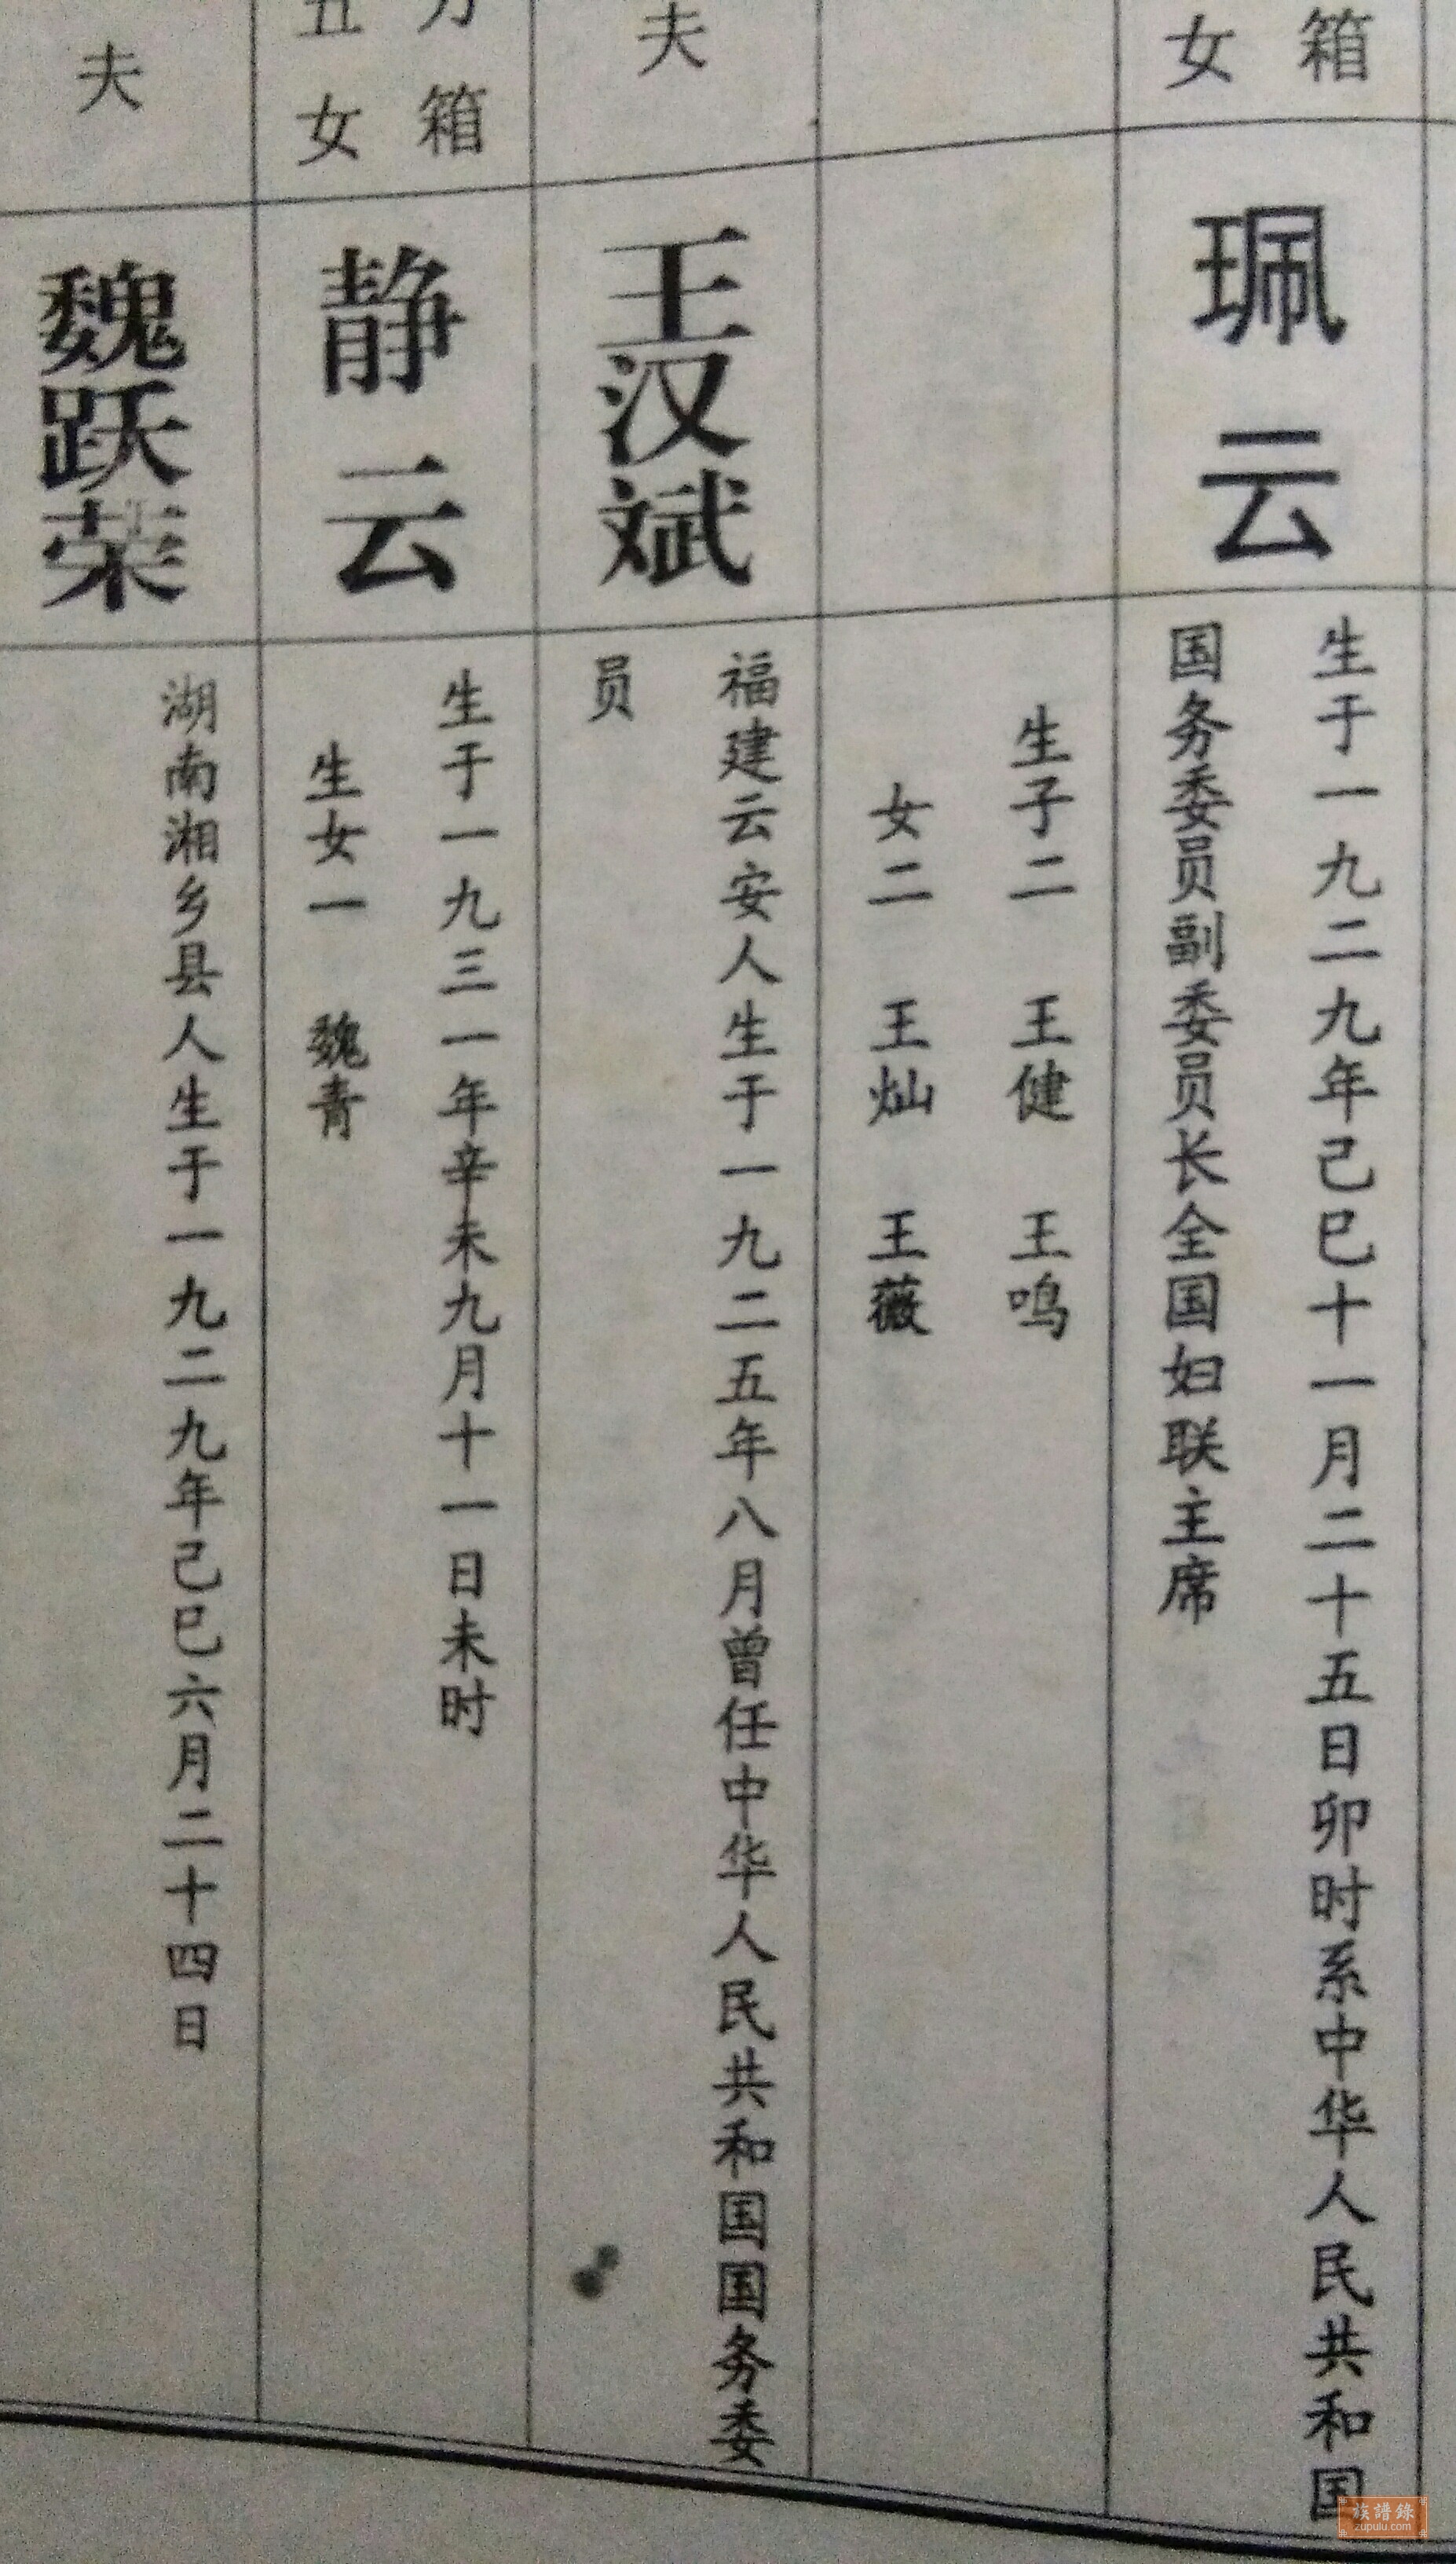 箱
女
珮云
生于一九二九年己巳十一月二十五日卯时系中华人民共和国
国务委员副委员长全国妇联主席
生子二 王健 王鸣
女二 王灿 王薇
夫
王汉斌
福建云安人生于一九二五年八月曾任中华人民共和国国务委
员
箱
女
静云
生于一九三一年辛未九月十一日未时
生女一 魏青
夫
魏跃荣
湖南湘乡县人生于一九二九年己巳六月二十四日
族譜錄
zupulu.com